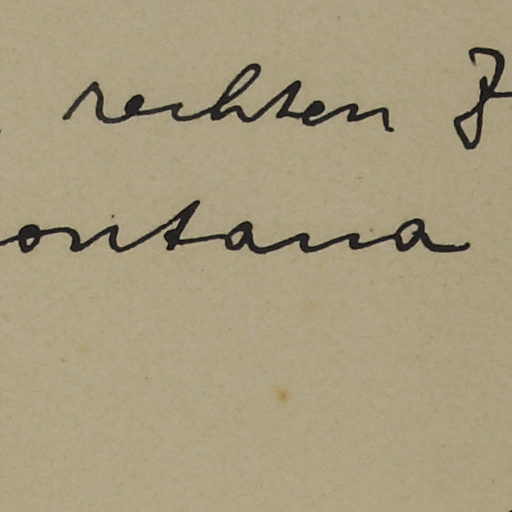 rechten
ontana